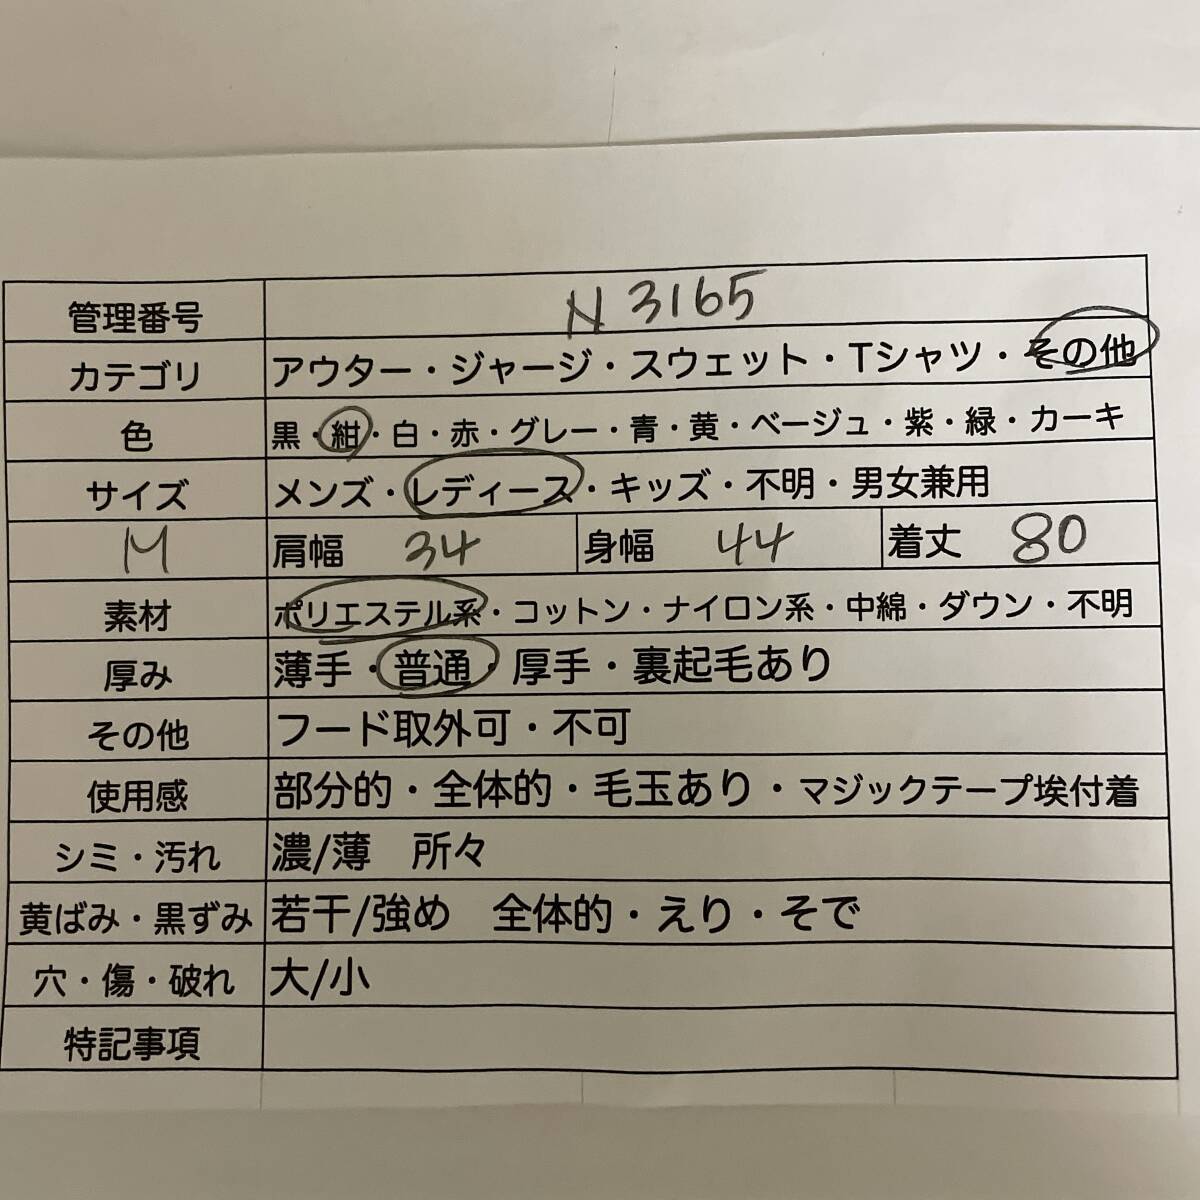 管理番号 N 3165
カテゴリ アウター・ジャージ・スウェット・Tシャツ・その他
色 黒・紺・白・赤・グレー・青・黄・ベージュ・紫・緑・カーキ
サイズ メンズ・レディース・キッズ・不明・男女兼用
M 肩幅 34 身幅 44 着丈 80
素材 ポリエステル系・コットン・ナイロン系・中綿・ダウン・不明
厚み 薄手・普通・厚手・裏起毛あり
その他 フード取外可・不可
使用感 部分的・全体的・毛玉あり・マジックテープ埃付着
シミ・汚れ 濃/薄 所々
黄ばみ・黒ずみ 若干/強め 全体的・えり・そで
穴・傷・破れ 大/小
特記事項